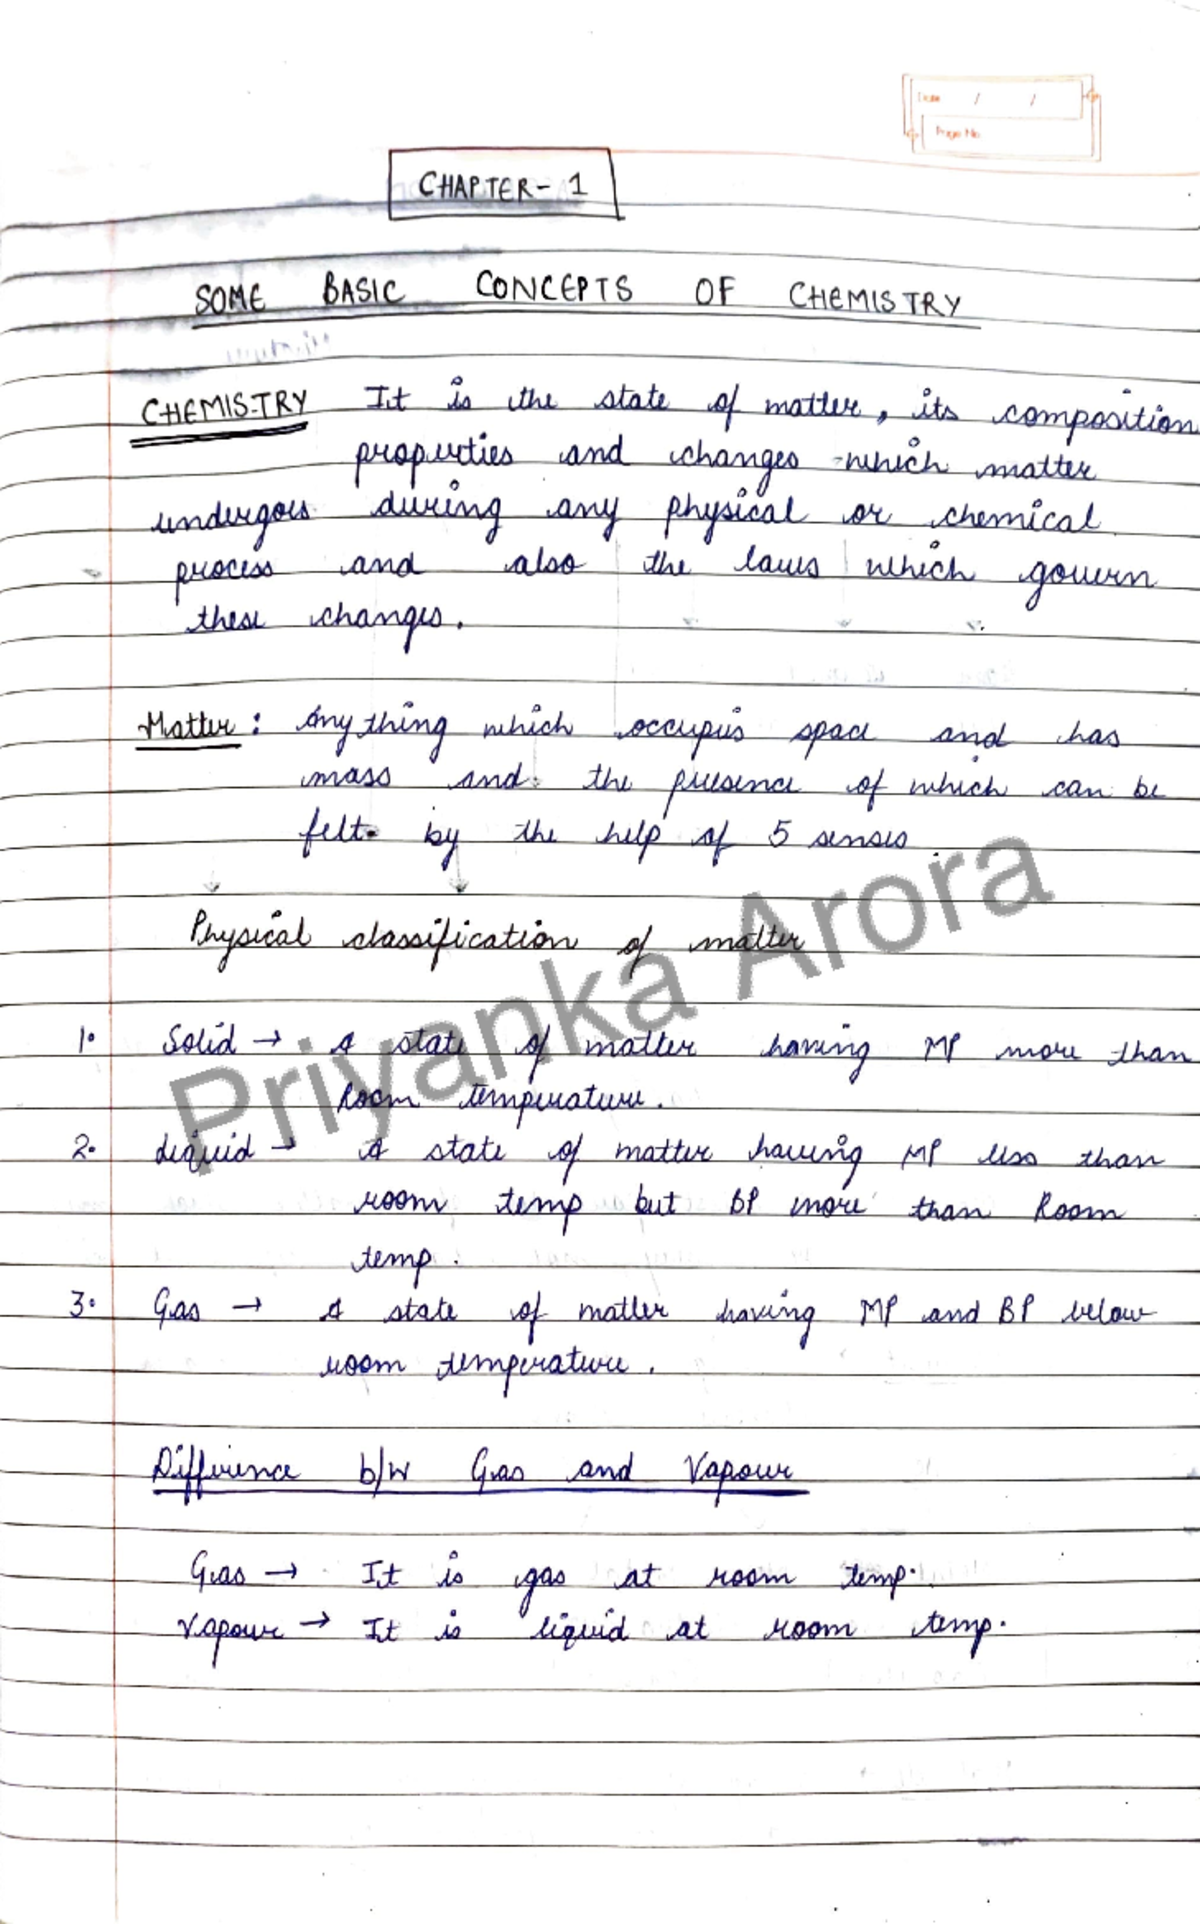 Date / /
Page No
CHAPTER - 1
SOME BASIC CONCEPTS OF CHEMISTRY
CHEMISTRY It is the state of matter, its composition
properties and changes which matter
undergoes during any physical or chemical
process and also the laws which govern
these changes.
Matter : Anything which occupies space and has
mass and the presence of which can be
felt by the help of 5 senses
Physical classification of matter
Priyanka Arora
1. Solid → A state of matter having MP more than
Room temperature.
2. Liquid → A state of matter having MP less than
room temp but BP more than Room
temp.
3. Gas → A state of matter having MP and BP below
room temperature.
Difference b/w Gas and Vapour
Gas → It is gas at room temp.
Vapour → It is liquid at room temp.